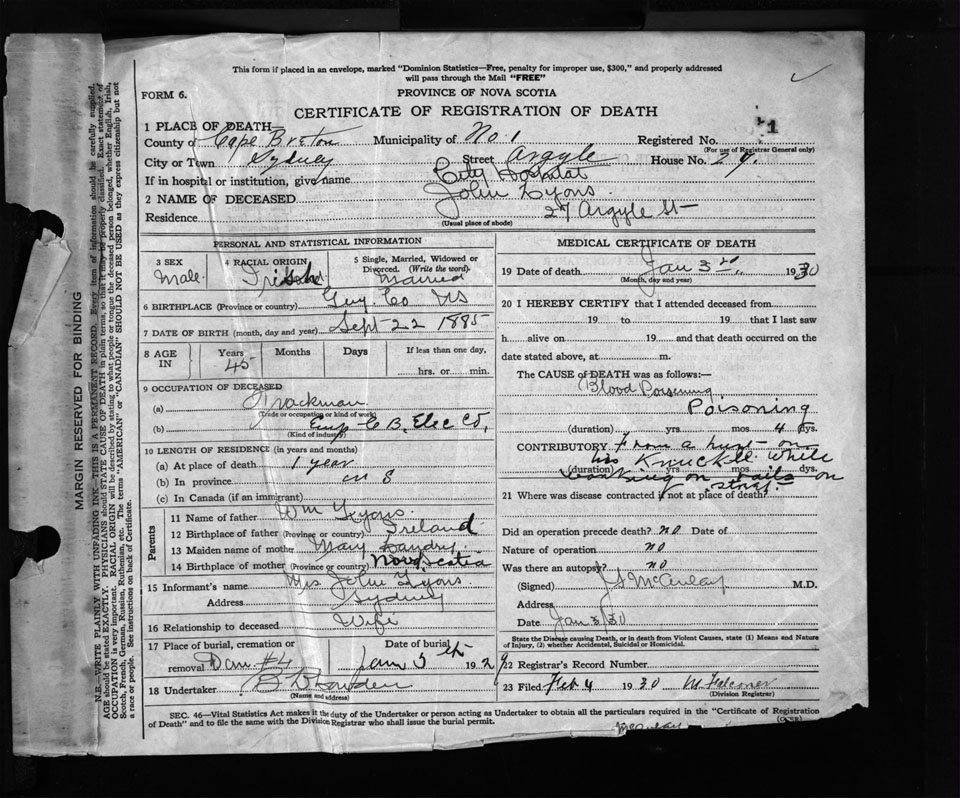 This form if placed in an envelope, marked "Dominion Statistics—Free, penalty for improper use, $300," and properly addressed
will pass through the Mail "FREE"
FORM 6.
PROVINCE OF NOVA SCOTIA
CERTIFICATE OF REGISTRATION OF DEATH
1 PLACE OF DEATH—
County of Cape Breton Municipality of No. 1 Registered No. 1
(For use of Registrar General only)
City or Town Sydney Street Argyle House No. 29.
If in hospital or institution, give name City Hospital
2 NAME OF DECEASED John Lyons.
Residence 27 Argyle St
(Usual place of abode)
PERSONAL AND STATISTICAL INFORMATION
3 SEX Male
4 RACIAL ORIGIN Irish
5 Single, Married, Widowed or
Divorced. (Write the word)
Married
6 BIRTHPLACE (Province or country) Guy. Co NS
7 DATE OF BIRTH (month, day and year) Sept 22 1885
8 AGE IN Years 45 Months Days If less than one day,
hrs. or min.
9 OCCUPATION OF DECEASED
(a) Trackman
(Trade or occupation or kind of work)
(b) Emp C B. Elec Co,
(Kind of industry)
10 LENGTH OF RESIDENCE (in years and months)
(a) At place of death 1 year
(b) In province
(c) In Canada (if an immigrant)
Parents
11 Name of father Wm Lyons.
12 Birthplace of father (Province or country) Ireland
13 Maiden name of mother Mary Landry
14 Birthplace of mother (Province or country) Nova Scotia
15 Informant's name Mrs John Lyons
Address Sydney
16 Relationship to deceased Wife
17 Place of burial, cremation or
removal Dam #4
Date of burial
Jan 5 th 1929
18 Undertaker
(Name and address)
MEDICAL CERTIFICATE OF DEATH
19 Date of death Jan 3rd, 1930
(Month, day and year)
20 I HEREBY CERTIFY that I attended deceased from
19 to 19 that I last saw
h alive on 19 and that death occurred on the
date stated above, at m.
The CAUSE OF DEATH was as follows:—
Blood Poisening
Poisoning
(duration) yrs. mos 4 dys.
CONTRIBUTORY From a hurt on
his Knuckle while
(duration) yrs mos dys.
working on rails on
21 Where was disease contracted if not at place of death?
Did an operation precede death? no Date of
Nature of operation no
Was there an autopsy? no
(Signed) McAulay M.D.
Address
Date Jan 3/30
State the Disease causing Death, or in death from Violent Causes, state (1) Means and Nature
of Injury, (2) whether Accidental, Suicidal or Homicidal.
22 Registrar's Record Number
23 Filed Feb 4 1930 M Falconer
(Division Registrar)
SEC. 46—Vital Statistics Act makes it the duty of the Undertaker or person acting as Undertaker to obtain all the particulars required in the "Certificate of Registration
of Death" and to file the same with the Division Registrar who shall issue the burial permit.
(OVER)
McAulay
MARGIN RESERVED FOR BINDING
N.B.—WRITE PLAINLY WITH UNFADING INK—THIS IS A PERMANENT RECORD. Every item of information should be carefully supplied.
AGE should be stated EXACTLY. PHYSICIANS should STATE CAUSE OF DEATH in plain terms, so that it may be properly classified. Exact statement of
OCCUPATION is very important. RACIAL ORIGIN will be described by stating to what people or tongue the deceased person belonged, whether English, Irish,
Scotch, French, German, Russian, Ruthenian, etc. The terms "AMERICAN" or "CANADIAN" SHOULD NOT BE USED as they express citizenship but not
a race or people. See instructions on back of Certificate.